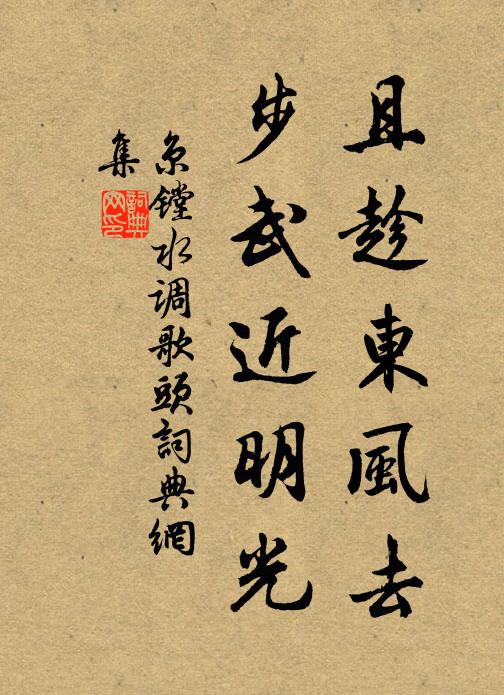 且趁東風去
步武近明光
京鏜水调歌頭詞典網
集
詞典
网印